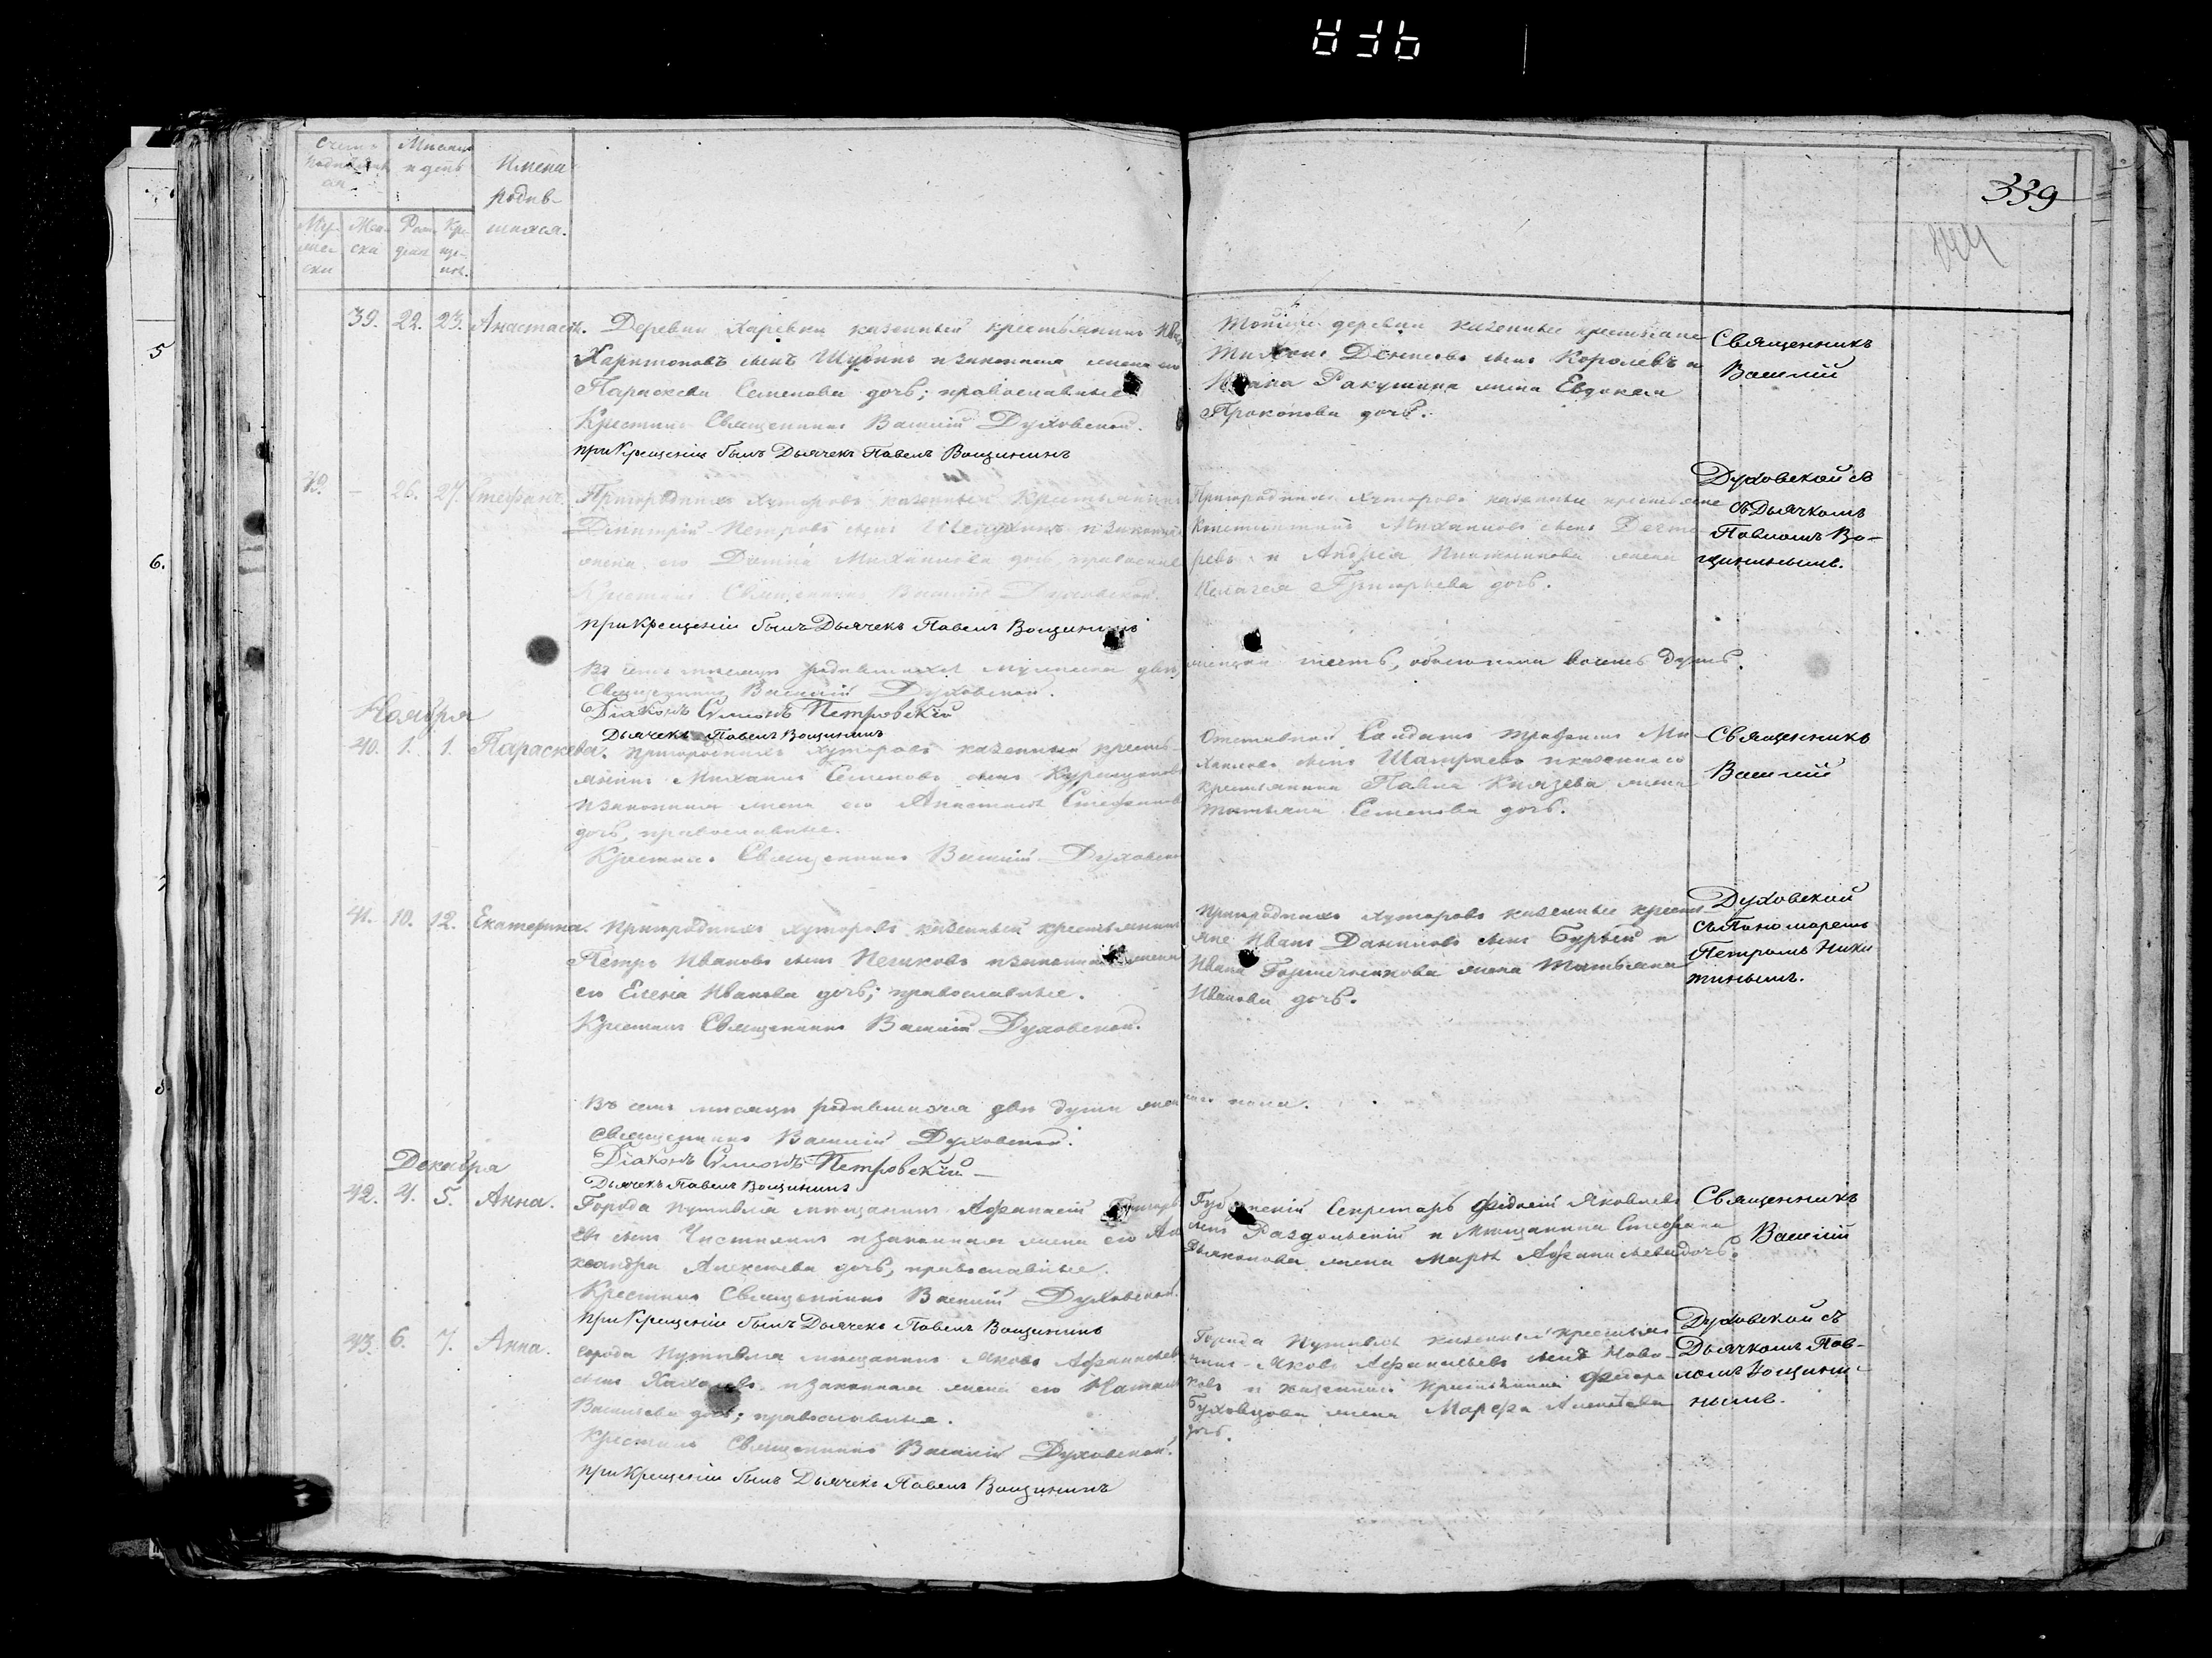 339
Счетъ родившихся
Месяцъ и день
Имена родив-
шихся.
Му-
жес-
ски
Жен-
ски
Рож-
денія
Кре-
ще-
нія.
39. 22. 23. Анастасія. Деревни Харевки казенный крестьянинъ Иванъ
Харитоновъ сынъ Шубинъ и законная жена его
Параскева Семенова дочь; православные
Крестилъ Священникъ Василій Духовской.
при Крещеніи былъ Дьячекъ Павелъ Вощининъ
Тойже деревни казенные крестьяне
Тихонъ Денисовъ сынъ Королевъ и
Ивана Ракушина жена Евдокея
Прокопова дочь.
Священникъ
Василій
Духовской съ
съ Дьячкомъ
Павломъ Во-
щининымъ.
19. – 26. 27. Стефанъ. Пригородныхъ Хуторовъ казенный Крестьянинъ
Димитрій Петровъ сынъ и законная
жена его Домна Михайлова дочь, православные
Крестилъ Священникъ Василій Духовской.
при Крещеніи былъ Дьячекъ Павелъ Вощининъ
Пригородныхъ Хуторовъ казенные крестьяне
Константинъ Михайловъ сынъ Дегте-
ревъ и Андрея жена
Пелагея Григорьева дочь.
Въ семъ месяце родившихся мужеска два, женска шесть, обоего пола восемь душъ.
Священникъ Василій Духовской.
Діаконъ Симонъ Петровскій
Дьячекъ Павелъ Вощининъ
Ноября
40. 1. 1. Параскева. Пригородныхъ Хуторовъ казенный кресть-
янинъ Михаилъ Семеновъ сынъ Курищновъ
и законная жена его Анастасія Стефанова
дочь, православные.
Крестилъ Священникъ Василій Духовской
Отставной Солдатъ Трофимъ Ми-
хайловъ сынъ Шатраевъ и казеннаго
крестьянина Павла Князева жена
Татьяна Семенова дочь.
Священникъ
Василій
Духовский
съ Пономаремъ
Петромъ Ники
тинымъ.
41. 10. 12. Екатерина. Пригородныхъ хуторовъ казенный крестьянинъ
Петръ Ивановъ сынъ Пешковъ и законная жена
его Елена Иванова дочь; православные.
Крестилъ Священникъ Василій Духовской.
Пригородныхъ хуторовъ казенные кресть-
яне Иванъ Даниловъ сынъ Бурый и
Ивана Горшечникова жена Татьяна
Иванова дочь.
Въ семъ месяце родившихся две души женска пола.
Священникъ Василій Духовской.
Діаконъ Симонъ Петровскій
Дьячекъ Павелъ Вощининъ
Декабря
42. 4. 5. Анна. Города Путивля мещанинъ Афанасій Григорь
евъ сынъ Чистилинъ и законная жена его Але
ксандра Алексеева дочь, православные.
Крестилъ Священникъ Василій Духовской.
при Крещеніи былъ Дьячекъ Павелъ Вощининъ
Губернскій Секретарь Яковлевъ
сынъ Раздольскій и Мещанина Стефана
Дьяконова жена Марѳа Афанасьева дочь.
Священникъ
Василій
Духовской съ
Дьячкомъ Пав-
ломъ Вощини-
нымъ.
43. 6. 7. Анна. Города Путивля мещанинъ Яковъ Афанасьевъ
сынъ Хахолевъ и законная жена его Наталія
Васильева дочь; православные.
Крестилъ Священникъ Василій Духовской.
при Крещеніи былъ Дьячекъ Павелъ Вощининъ
Города Путивля казенный крестья-
нинъ Яковъ Афанасьевъ сынъ Нови-
ковъ и казеннаго крестьянина Федора
Буховцова жена Марфа Алексеева
дочь.